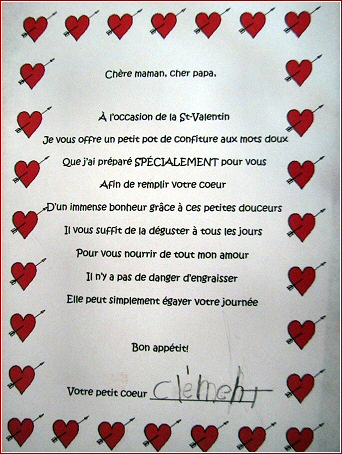 Chère maman, cher papa,
À l'occasion de la St-Valentin
Je vous offre un petit pot de confiture aux mots doux
Que j'ai préparé SPÉCIALEMENT pour vous
Afin de remplir votre coeur
D'un immense bonheur grâce à ces petites douceurs
Il vous suffit de la déguster à tous les jours
Pour vous nourrir de tout mon amour
Il n'y a pas de danger d'engraisser
Elle peut simplement égayer votre journée
Bon appétit!
Votre petit coeur clément